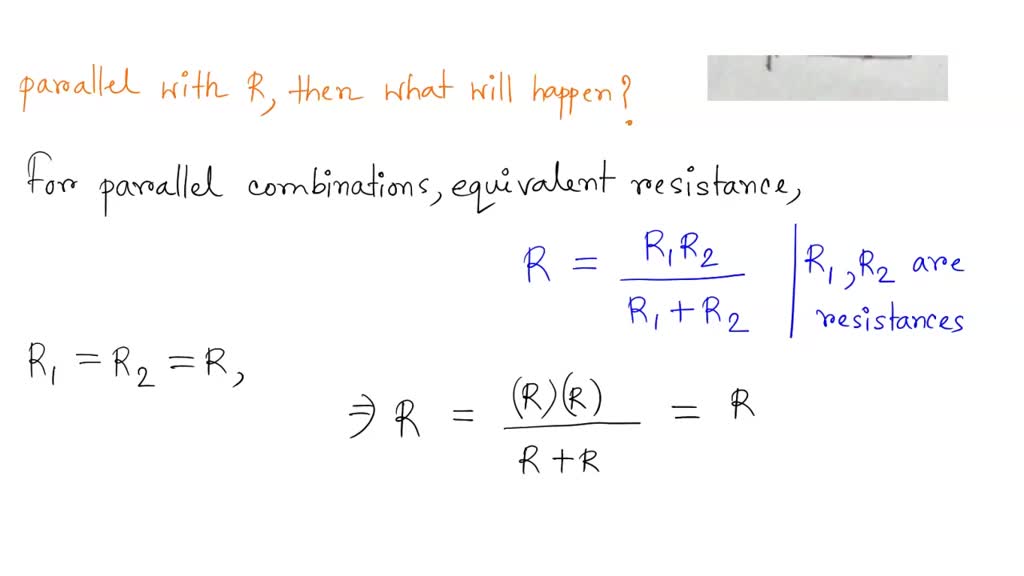 parallel with R, then what will happen?
For parallel combinations, equivalent resistance,
R = R₁R₂ / R₁ + R₂ | R₁, R₂ are resistances
R₁ = R₂ = R,
⇒ R = (R)(R) / R + R = R